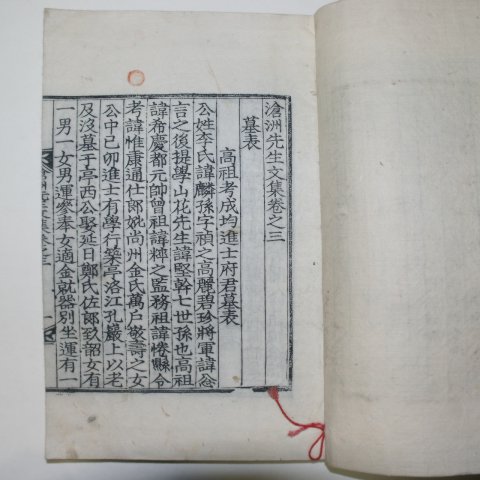 滄洲先生文集卷之三
墓表
高祖考成均進士府君墓表
公姓李氏諱麟孫字禎之高麗碧珍將軍諱忩
言之後提學山花先生諱堅幹七世孫也高祖
諱希慶都元帥曾祖諱粹之監務祖諱惓縣令
考諱惟康通仕郎妣尚州金氏萬戶粲壽之女
公中己卯進士有學行築亭洛江孔巖上以老
及沒墓于亭西公娶延日鄭氏佐郎致韶女有
一男一女男運參奉女適金就器別坐運有一